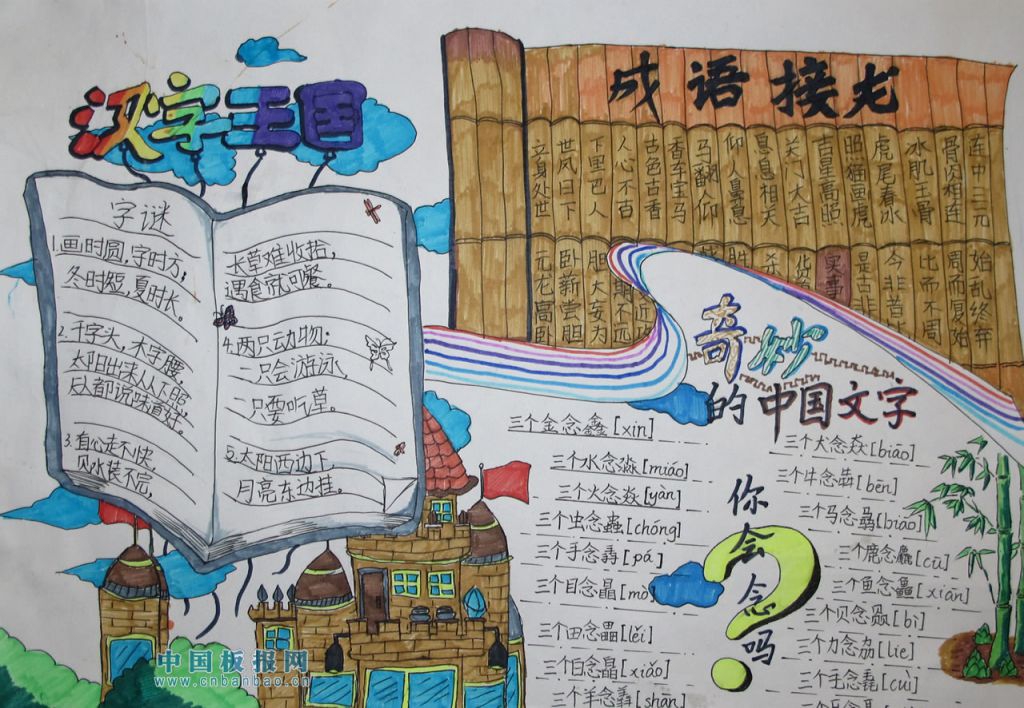 汉字王国
字谜
1.画时圆,字时方;
冬时短,夏时长。
2.千字头,木字腰,
太阳出来从下照,
人都说味道好。
3.有心走不快,
见水装不完,
长草难收拾,
遇食就可餐。
4.两只动物:
一只会游泳,
一只要吃草。
5.太阳西边下,
月亮东边挂。
成语接龙
立身处世
世风日下
下里巴人
人心不古
古色古香
香车宝马
马翻人仰
仰人鼻息
息息相关
关门大吉
吉星高照
照猫画虎
虎尾春冰
冰肌玉骨
骨肉相连
连中三元
元龙高卧
卧新尝胆
胆大妄为
实事
是古非今
今非昔比
比而不周
周而复始
始乱终弃
奇妙
的中国文字
三个金念鑫[xin]
三个水念淼[miáo]
三个火念焱[yàn]
三个虫念蟲[chóng]
三个手念掱[pá]
三个目念瞐[mò]
三个田念畾[lěi]
三个白念皛[xiǎo]
三个羊念羴[shān]
你会念吗?
三个犬念猋[biāo]
三个牛念犇[bēn]
三个马念骉[biāo]
三个鹿念麤[cū]
三个鱼念鱻[xiān]
三个贝念赑[bì]
三个力念劦[lie]
三个毛念毳[cuì]
中国板报网
www.cnbanbao.cn